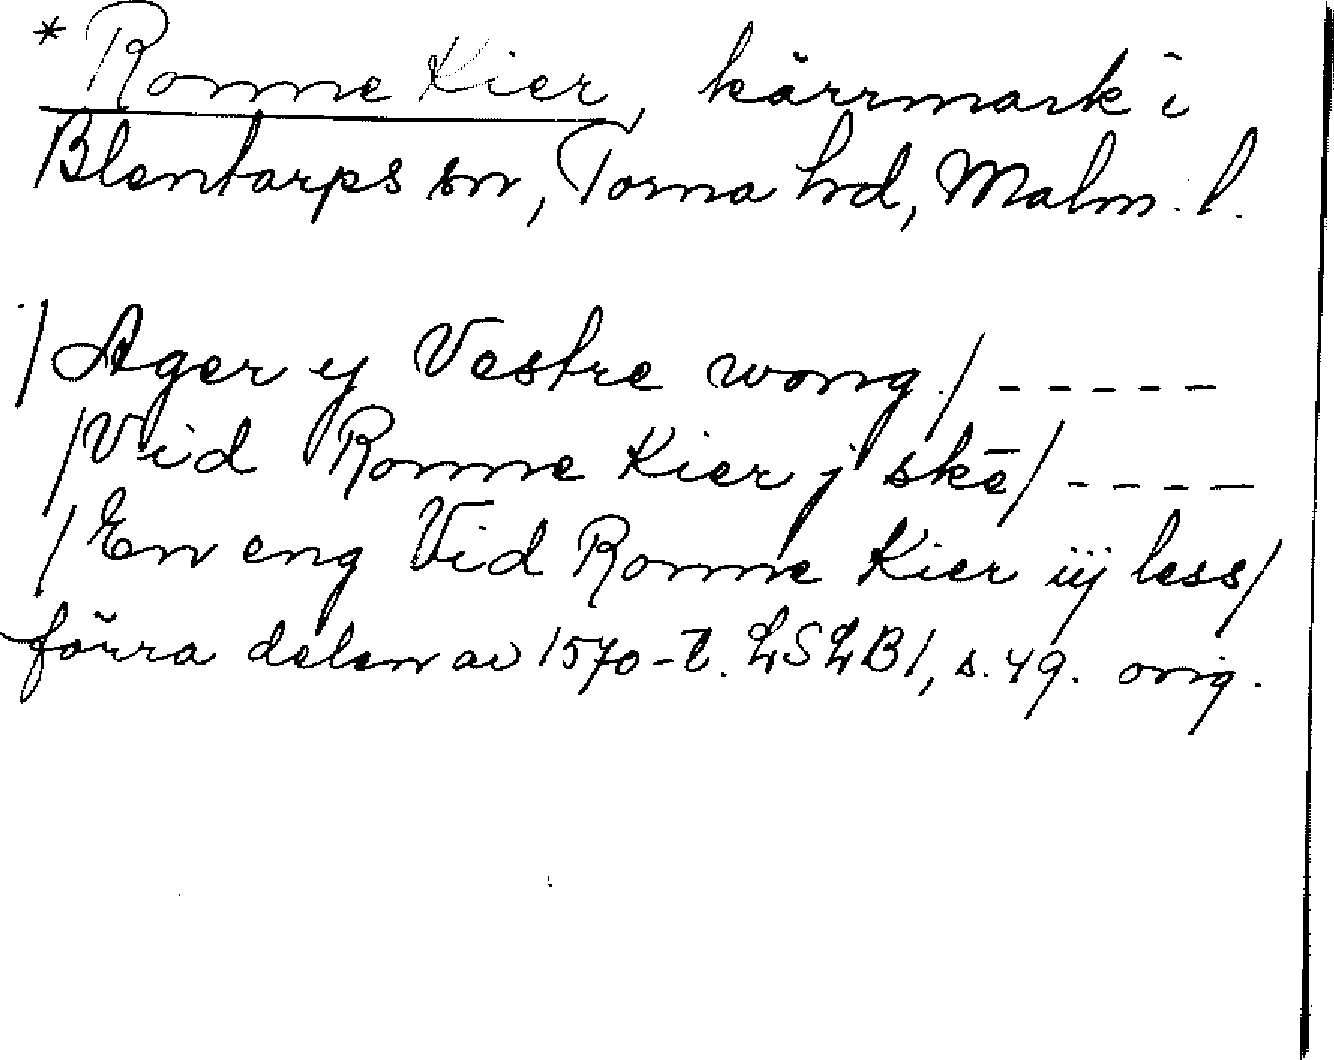 * Romme Kier, kärrmark i
Blentarps sn, Torna hd, Malm. l.
/Ager y Vestre wong/ - - - - -
/Vid Romme Kier j skē/ - - - -
/En eng Vid Romme Kier iij less/
förra delen av 1570-t. LSLB1, s. 49. orig.